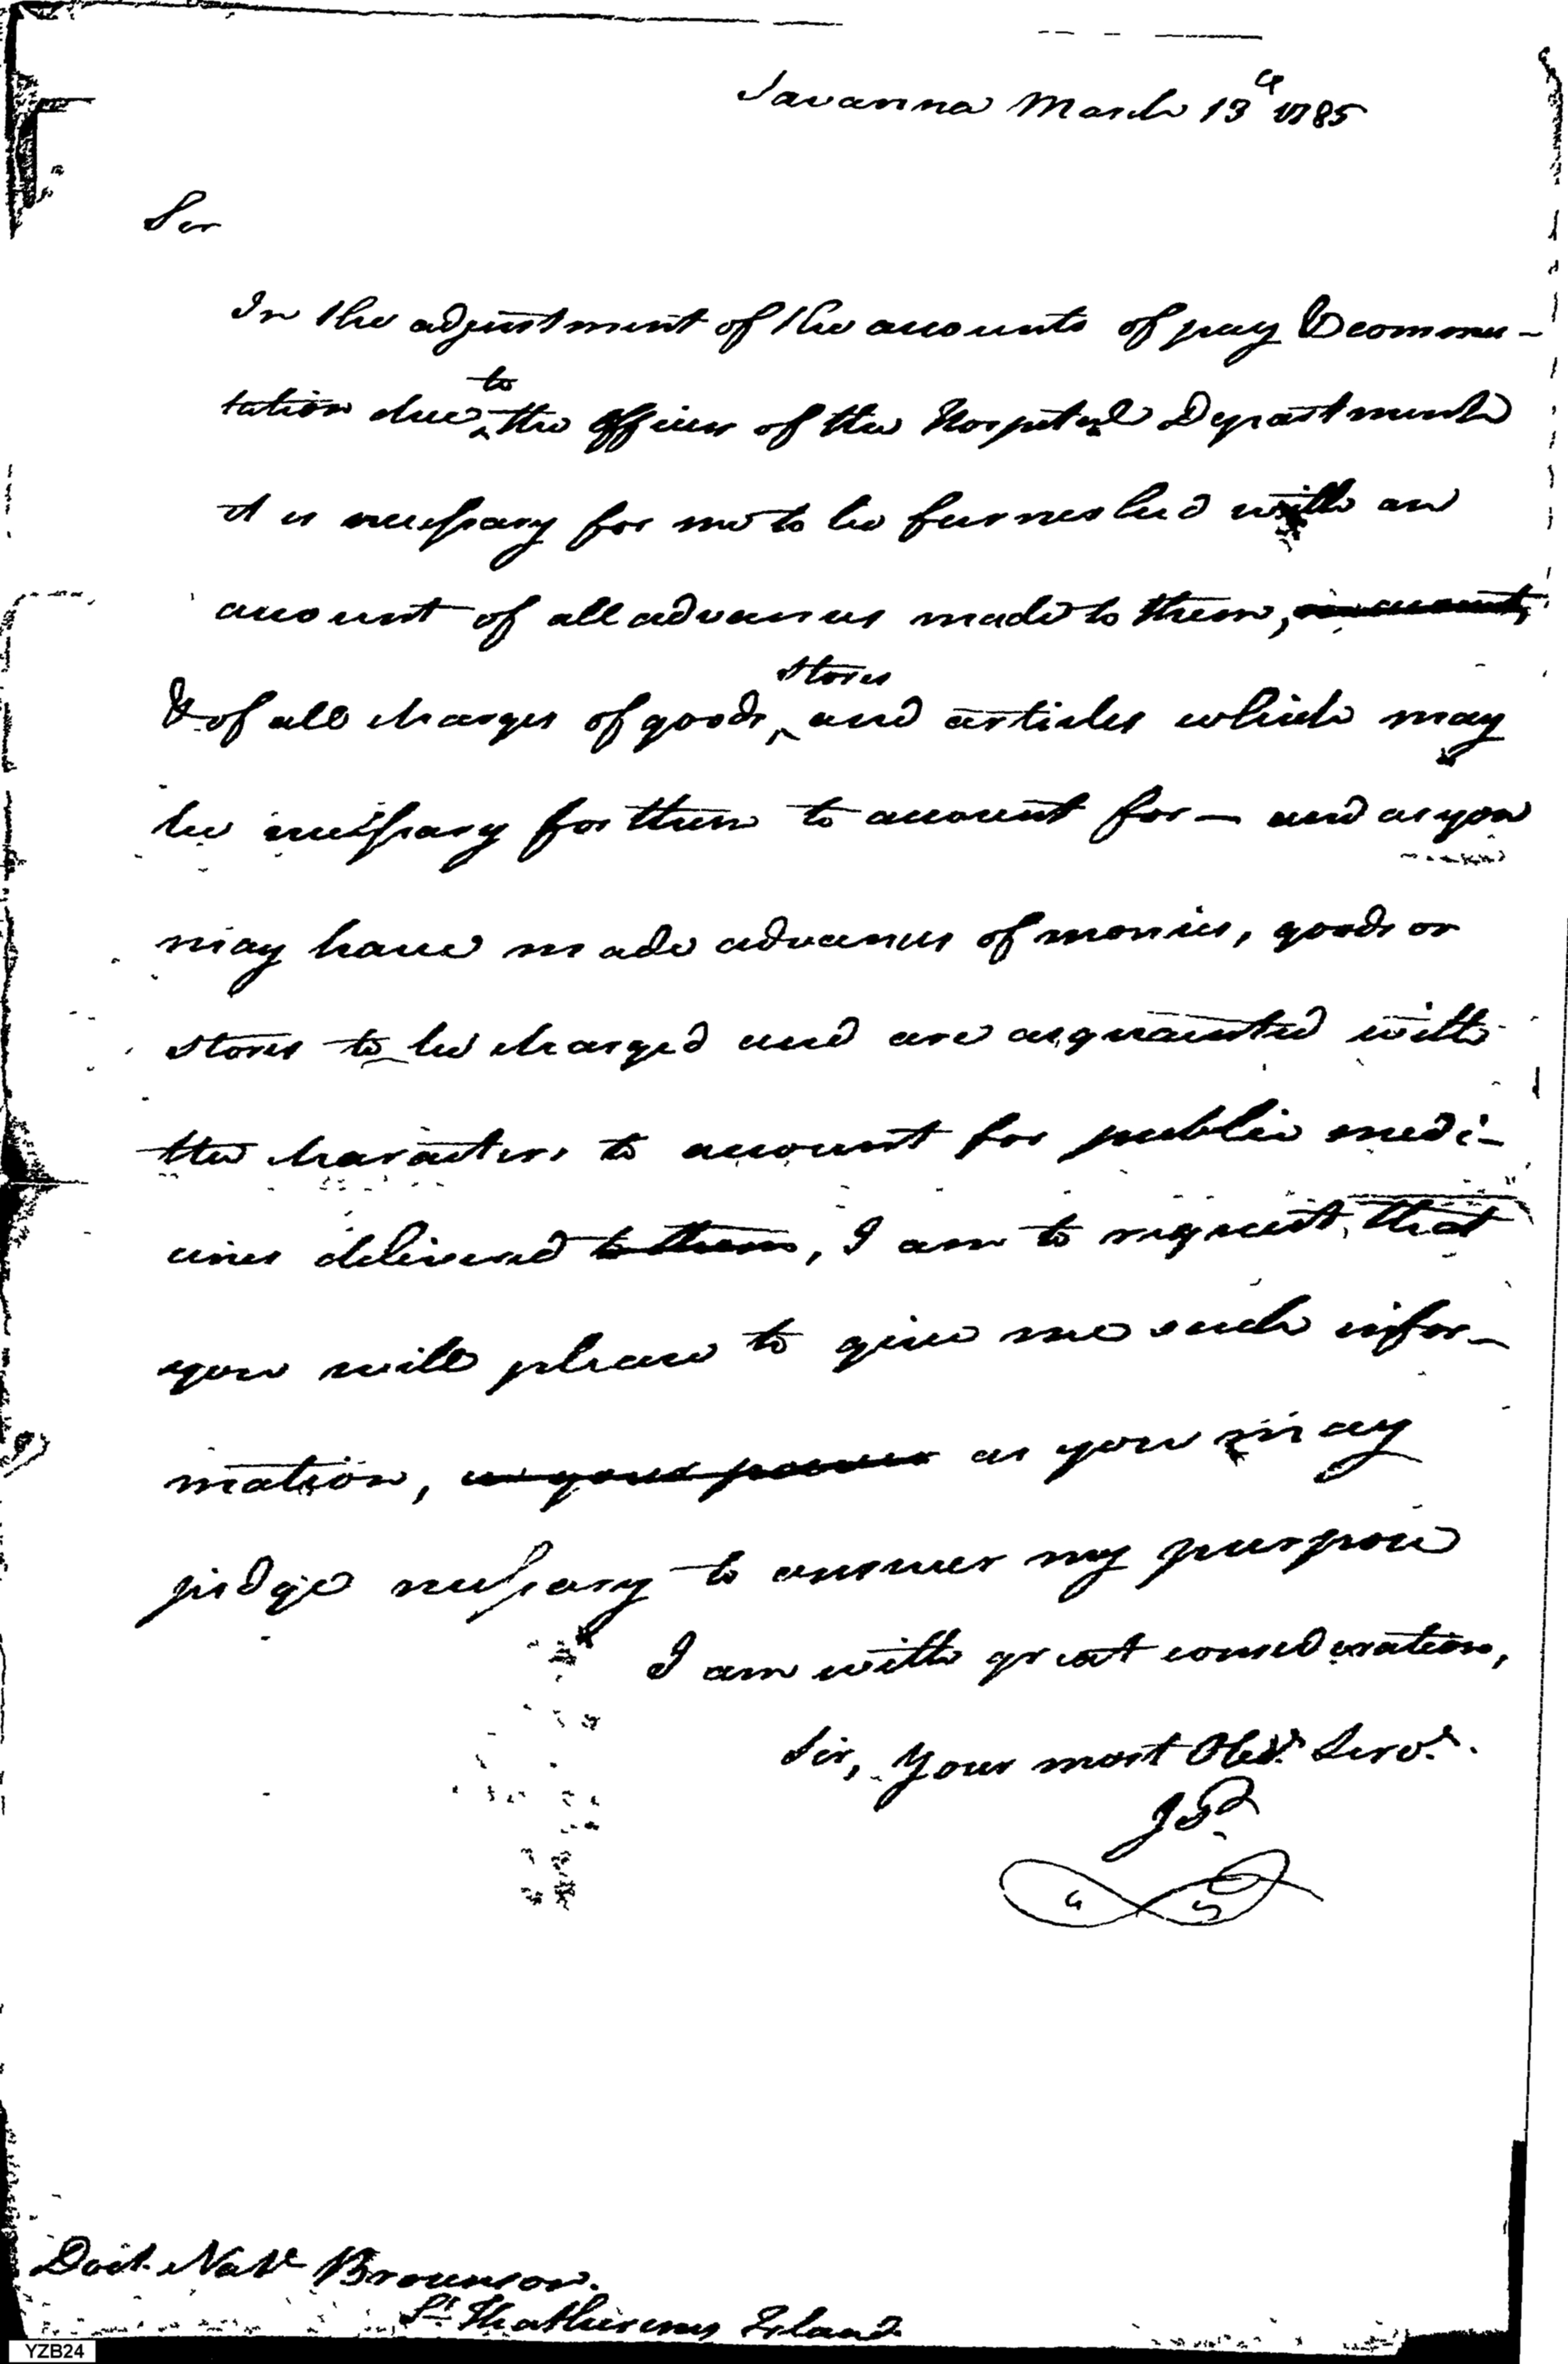 Savanna March 13th 1785
Sir
In the adjustment of the accounts of pay & commu-
tation due to the officers of the Hospital Department
it is necessary for me to be furnished with an
account of all advances made to them, in account,
& of all charges of goods, stores and articles which may
be necessary for them to account for — and as you
may have made advances of monies, goods or
stores to be charged and are acquainted with
the characters to account for public medi-
cines delivered to them, I am to request, that
you will please to give me such infor-
mation, as you may
judge necessary to answer my purpose
I am with great consideration,
Sir, Your most Obedt. Servt.
Doct. Natl Brownson.
St. Khatherines Island
YZB24